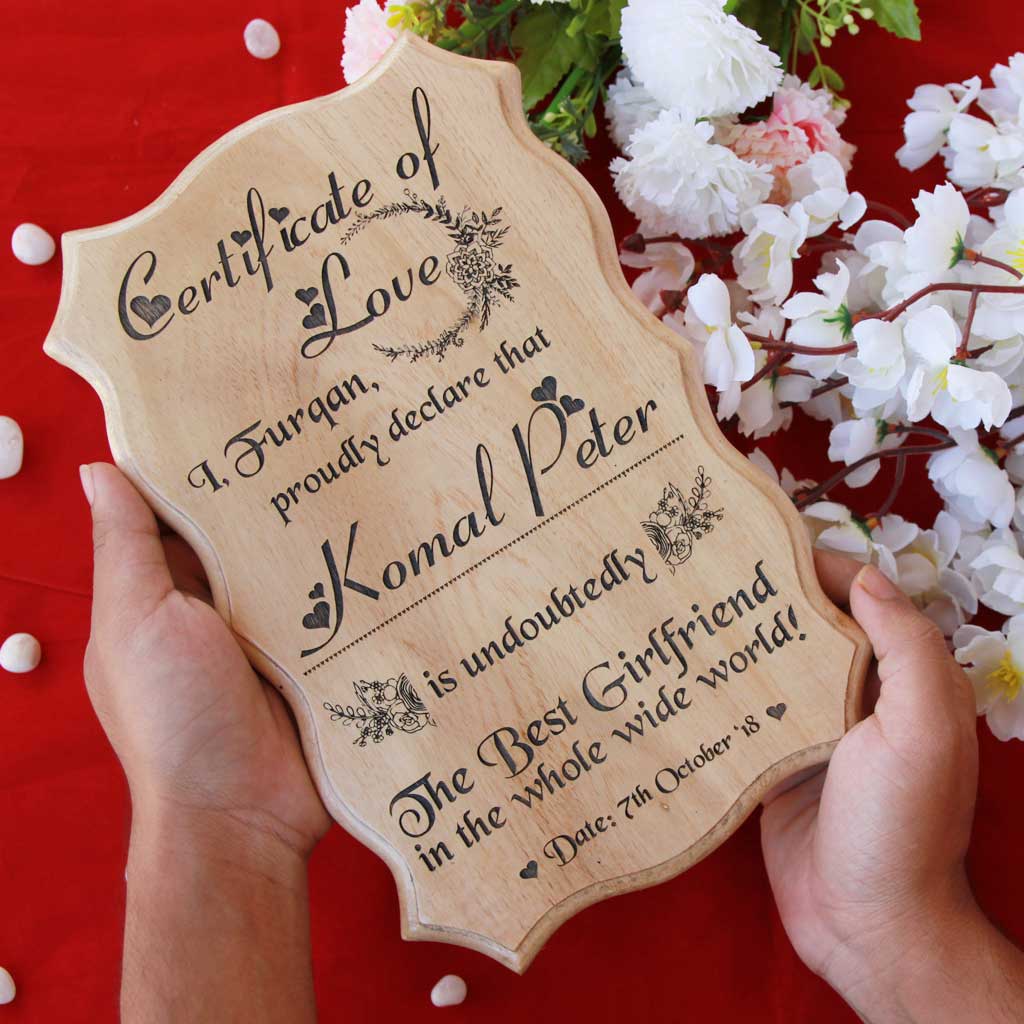 Certificate of
Love
I, Furqan,
proudly declare that
Komal Peter
is undoubtedly
The Best Girlfriend
in the whole wide world!
Date: 7th October '18